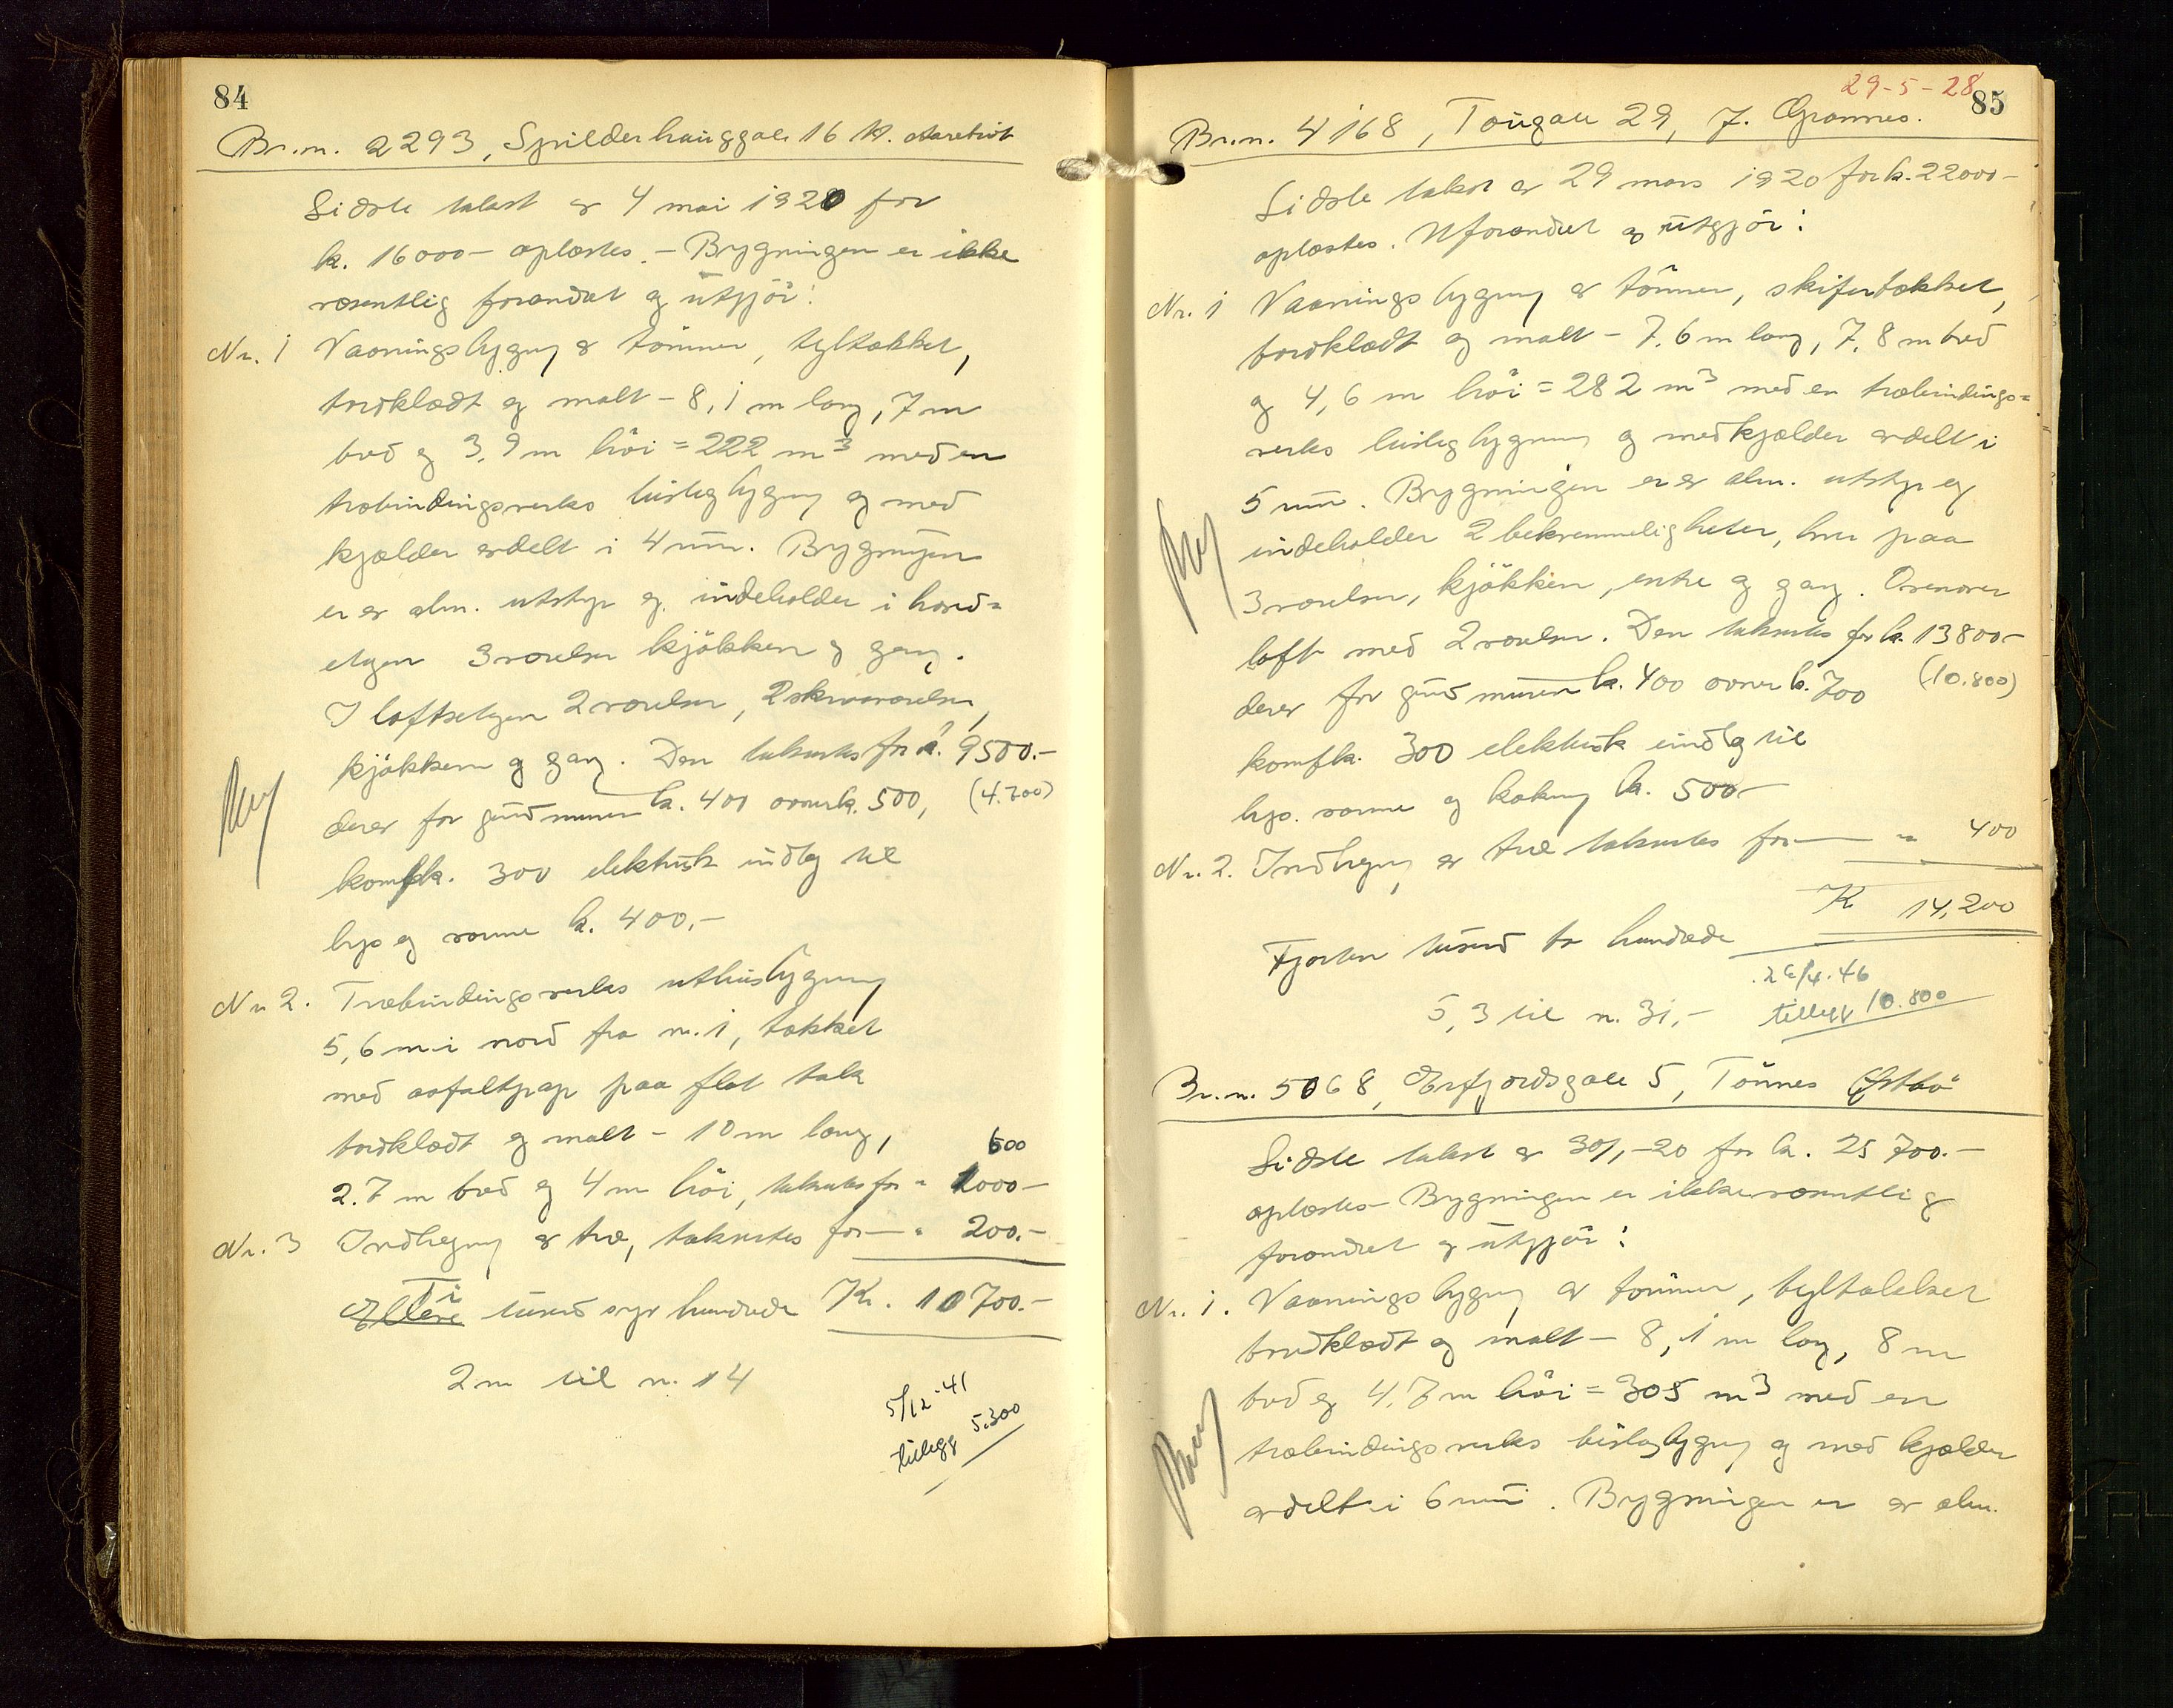 84
Br.n. 2293, Spilderhauggate 16
Sidste takst av 4 mai 1920 for
k. 16000- oplæstes. - Bygningen er ikke
væsentlig forandret og utgjør:
Nr. 1 Vaaningsbygning av tømmer, tegltækket,
bordklædt og malt - 8,1 m lang, 7 m
bred og 3,9 m høi = 222 m³ med en
træbindingsverks bislagbygning og med
kjælder avdelt i 4 rum. Bygningen
er av alm. utstyr og indeholder i hoved=
etagen 3 værelser kjøkken og gang.
I loftsetagen 2 værelser, 2 skraaværelser,
kjøkken og gang. Den takseres for k. 9500.-
derav for grundmuren k. 400 ovner k. 500, (4.700)
komf. k. 300 elektrisk indlæg til
lys og varme k. 400,-
Nr 2. Træbindingsverks uthusbygning
5,6 m i nord fra nr. 1, tækket
med asfaltpap paa flat tak
bordklædt og malt - 10 m lang, 600
2.7 m bred og 4 m høi, takseres for " 1000-
Nr. 3 Indhegning av træ, takseres for - " 200.-
Ti
Elleve tusend syv hundrede Kr. 10700.-
2 m til nr. 14
5/12-41
tillegg 5.300
29-5-28
85
Br.n. 4168, Tougate 29, J. Grannes.
Sidste takst av 29 mars 1920 for k. 22000-
oplæstes. Uforandret og utgjør:
Nr. 1 Vaaningsbygning av tømmer, skifertækket,
bordklædt og malt - 7,6 m lang, 7,8 m bred
og 4,6 m høi = 282 m³ med en træbindings=
verks bislagbygning og med kjælder avdelt i
5 rum. Bygningen er av alm. utstyr og
indeholder 2 bekvemmeligheter, hver paa
3 værelser, kjøkken, entre og gang. Ovenover
loft med 2 værelser. Den takseres for k. 13800-
derav for grundmuren k. 400 ovner k. 700 (10.800)
komf k. 300 elektrisk indlæg til
lys. varme og kokning k. 500-
Nr. 2. Indhegning av træ takseres for - " 400
K 14,200
Fjorten tusend to hundrede
26/4.46
5,3 til n. 31,- tillegg 10.800
Br.n. 5068, Erfjordsgate 5, Tønnes Østbø
Sidste takst av 30/1-20 for k. 25 700.-
oplæstes- Bygningen er ikke væsentlig
forandret og utgjør:
Nr. 1. Vaaningsbygning av tømmer, tegltækket
bordklædt og malt - 8,1 m lang, 8 m
bred og 4.7 m høi = 305 m³ med en
træbindingsverks bislagbygning og med kjælder
avdelt i 6 rum. Bygningen er av alm.